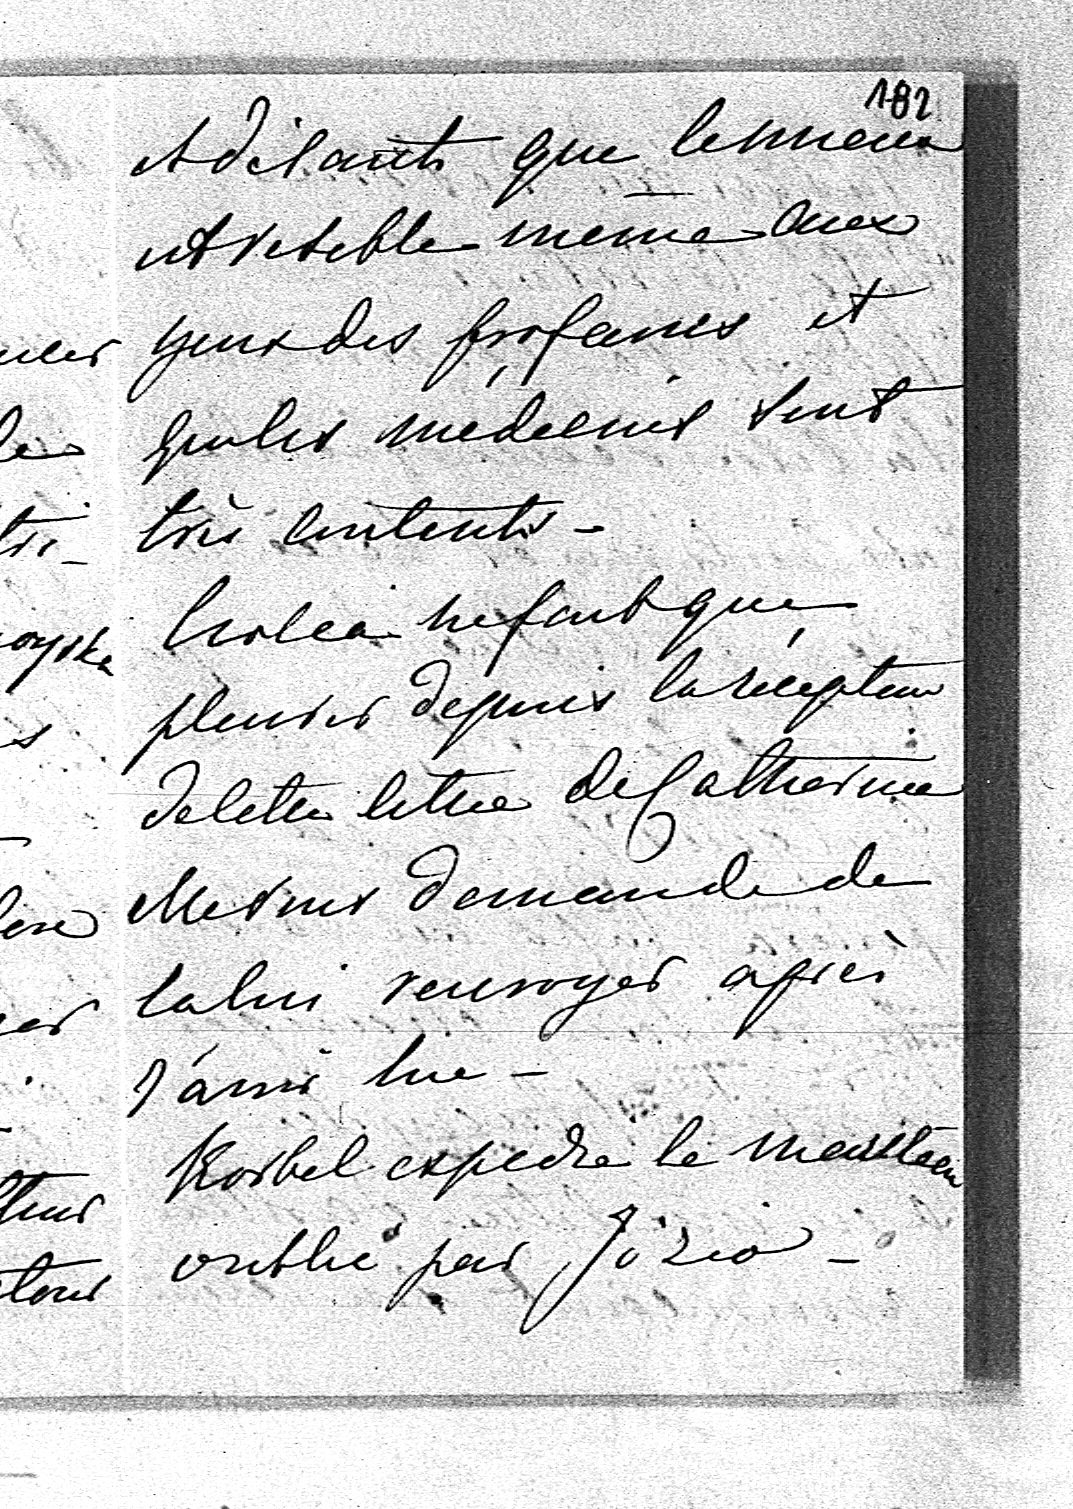 182
et disants que le mieux
est visible même aux
yeux des profanes et
que les médecins sont
très contents –
ne fait que
pleurer depuis la réception
de cette lettre de Catherine
Mesmer demande de
la lui renvoyer après
l'avoir lue –
Korbel expedie le manteau
oublié par Józio –